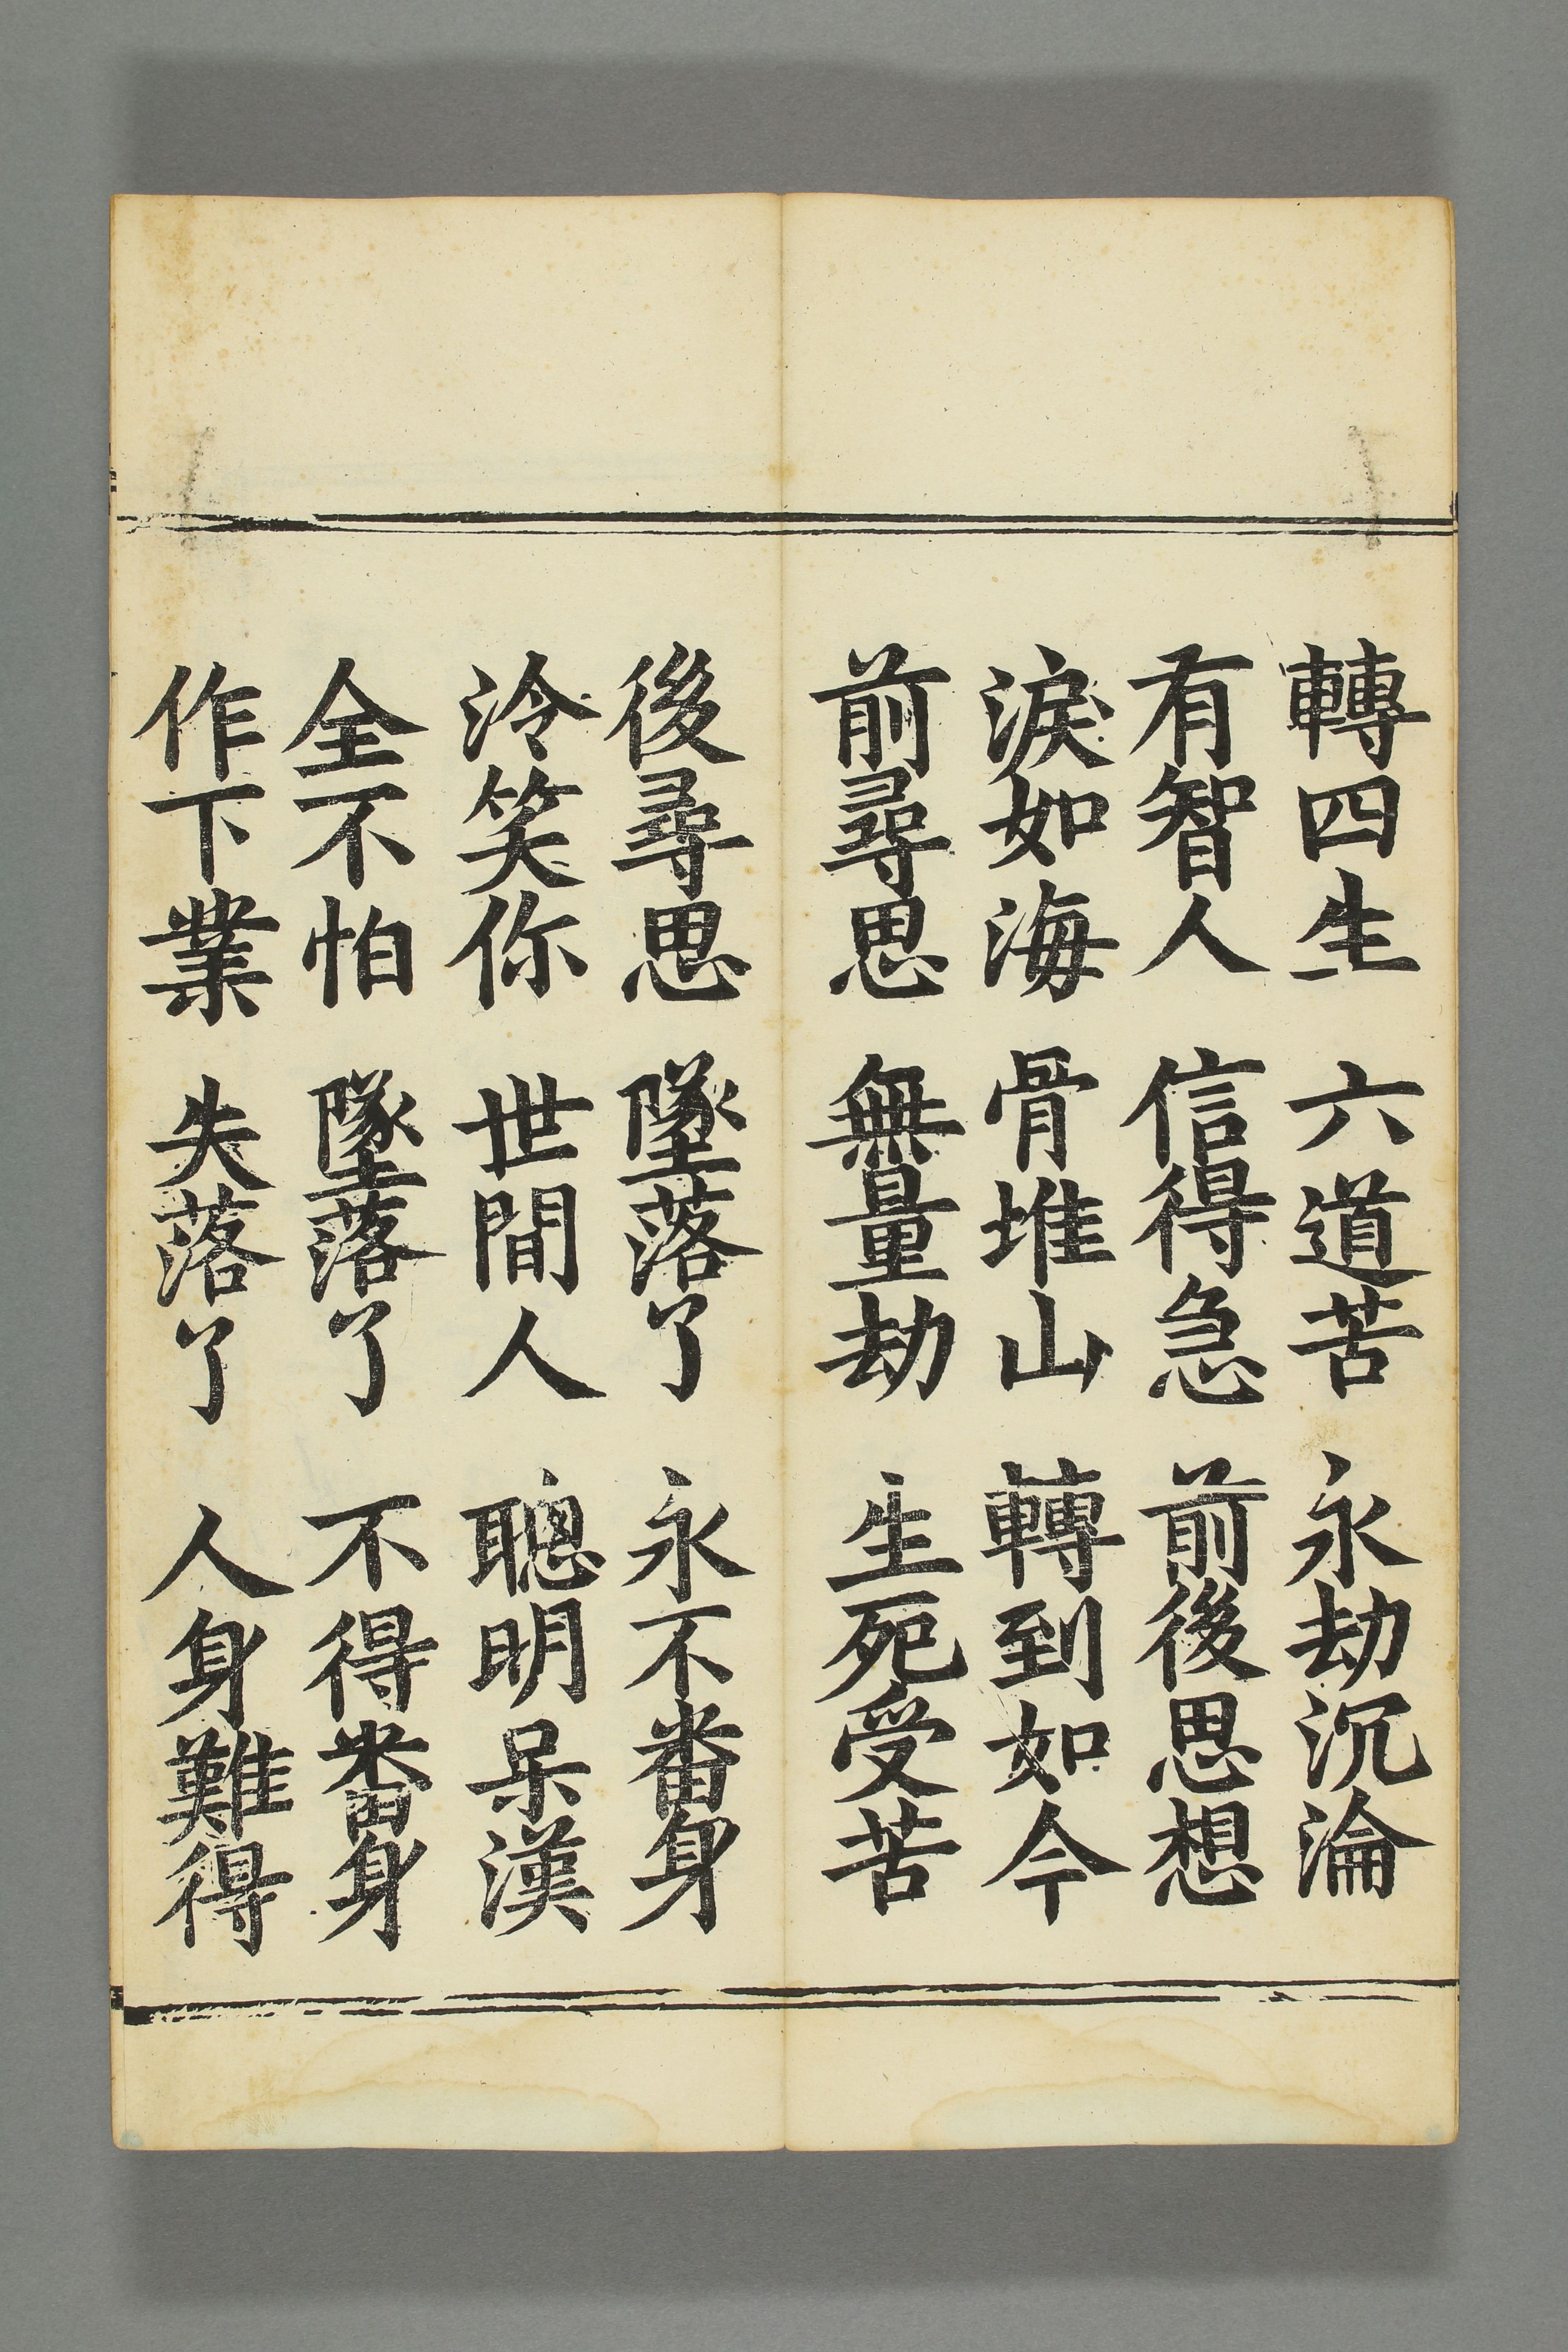 轉四生　六道苦　永劫沉淪
有智人　信得急　前後思想
淚如海　骨堆山　轉到如今
前尋思　無量劫　生死受苦
後尋思　墜落了　永不番身
泠笑你　世間人　聰明呆漢
全不怕　墜落了　不得番身
作下業　失落了　人身難得